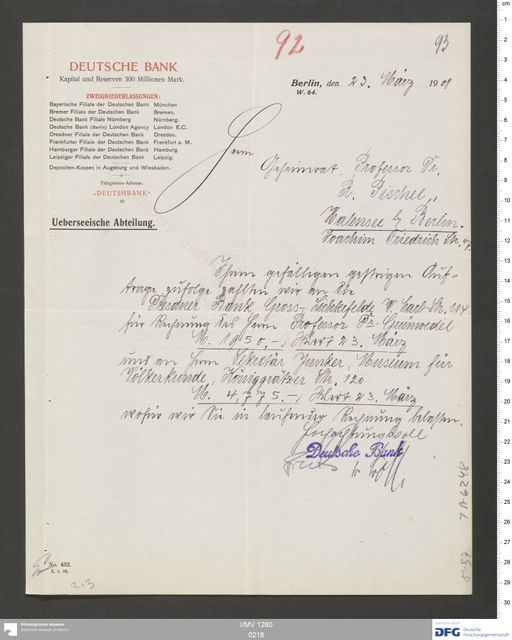 92
93
DEUTSCHE BANK
Kapital und Reserven 300 Millionen Mark.
ZWEIGNIEDERLASSUNGEN:
Bayerische Filiale der Deutschen Bank München
Bremer Filiale der Deutschen Bank Bremen.
Deutsche Bank Filiale Nürnberg Nürnberg.
Deutsche Bank (Berlin) London Agency London E.C.
Dresdner Filiale der Deutschen Bank Dresden.
Frankfurter Filiale der Deutschen Bank Frankfurt a. M.
Hamburger Filiale der Deutschen Bank Hamburg.
Leipziger Filiale der Deutschen Bank Leipzig.
Depositen-Kassen in Augsburg und Wiesbaden.
Telegramm-Adresse:
»DEUTSHBANK«
Ueberseeische Abteilung.
Berlin, den 23. März 1909
W. 64.
Herrn
Geheimrat Professor Dr.
R. Pischel,
Halensee b/ Berlin.
Joachim Friedrich Str. 47
Ihrem gefälligen gestrigen Auf-
trage zufolge zahlten wir an die
Dresdner Bank, Gross-Lichterfelde W. Carl-Str. 114
für Rechnung des Herrn Professor Dr. Grünwedel
M. 1950,-, Wert 23. März
und an Herrn Sekretär Junker, Museum für
Völkerkunde, Königgrätzer Str. 120
M. 4,775.-, Wert 23. März
wofür wir Sie in laufender Rechnung belasten.
Hochachtungsvoll
Deutsche Bank
No. 432.
203
7A-6248
I/MV 1280
0218
Ethnologisches Museum
Staatliche Museen zu Berlin
DFG Deutsche
Forschungsgemeinschaft